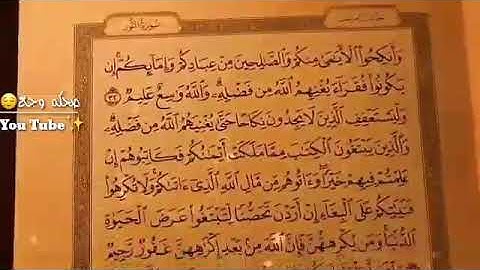 سورة النور
وَأَنكِحُوا۟ ٱلْأَيَـٰمَىٰ مِنكُمْ وَٱلصَّـٰلِحِينَ مِنْ عِبَادِكُمْ وَإِمَآئِكُمْ إِن
يَكُونُوا۟ فُقَرَآءَ يُغْنِهِمُ ٱللَّهُ مِن فَضْلِهِۦ وَٱللَّهُ وَٰسِعٌ عَلِيمٌ ٣٢
وَلْيَسْتَعْفِفِ ٱلَّذِينَ لَا يَجِدُونَ نِكَاحًا حَتَّىٰ يُغْنِيَهُمُ ٱللَّهُ مِن فَضْلِهِۦ
وَٱلَّذِينَ يَبْتَغُونَ ٱلْكِتَـٰبَ مِمَّا مَلَكَتْ أَيْمَـٰنُكُمْ فَكَاتِبُوهُمْ إِنْ
عَلِمْتُمْ فِيهِمْ خَيْرًا وَءَاتُوهُم مِّن مَّالِ ٱللَّهِ ٱلَّذِىٓ ءَاتَىٰكُمْ وَلَا تُكْرِهُوا۟
فَتَيَـٰتِكُمْ عَلَى ٱلْبِغَآءِ إِنْ أَرَدْنَ تَحَصُّنًا لِّتَبْتَغُوا۟ عَرَضَ ٱلْحَيَوٰةِ
ٱلدُّنْيَا وَمَن يُكْرِههُّنَّ فَإِنَّ ٱللَّهَ مِنۢ بَعْدِ إِكْرَٰهِهِنَّ غَفُورٌ رَّحِيمٌ
You Tube